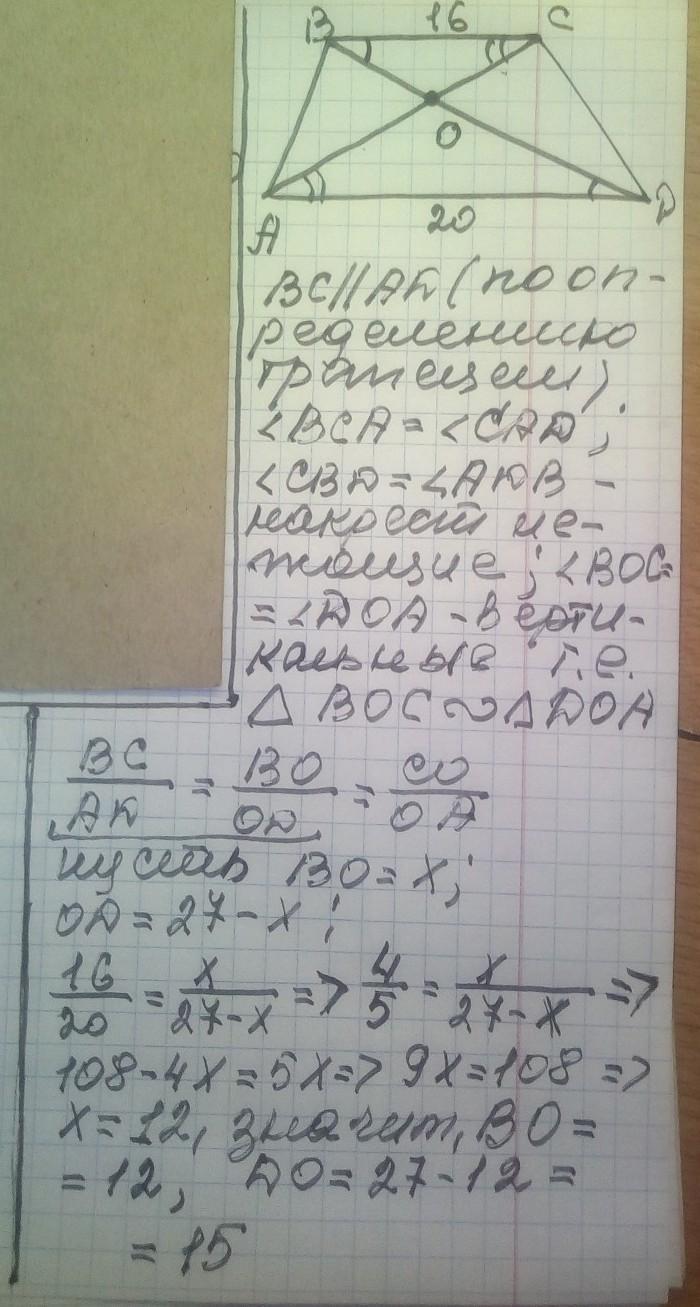 B 16 C
O
A 20 D
BC||АД (по оп-
ределению
трапеции)
<BCA = <CAD;
<CBD = <ADB -
накрест ле-
жащие; <BOC=
= <DOA - верти-
кальные т.е.
△ BOC ∾ △DOA
BC/АД = BO/OD = CO/OA
пусть BO = x;
OD = 27 - x;
16/20 = x/27-x => 4/5 = x/27-x =>
108-4x = 5x => 9x=108 =>
x = 12, значит, BO =
= 12, DO = 27-12 =
= 15